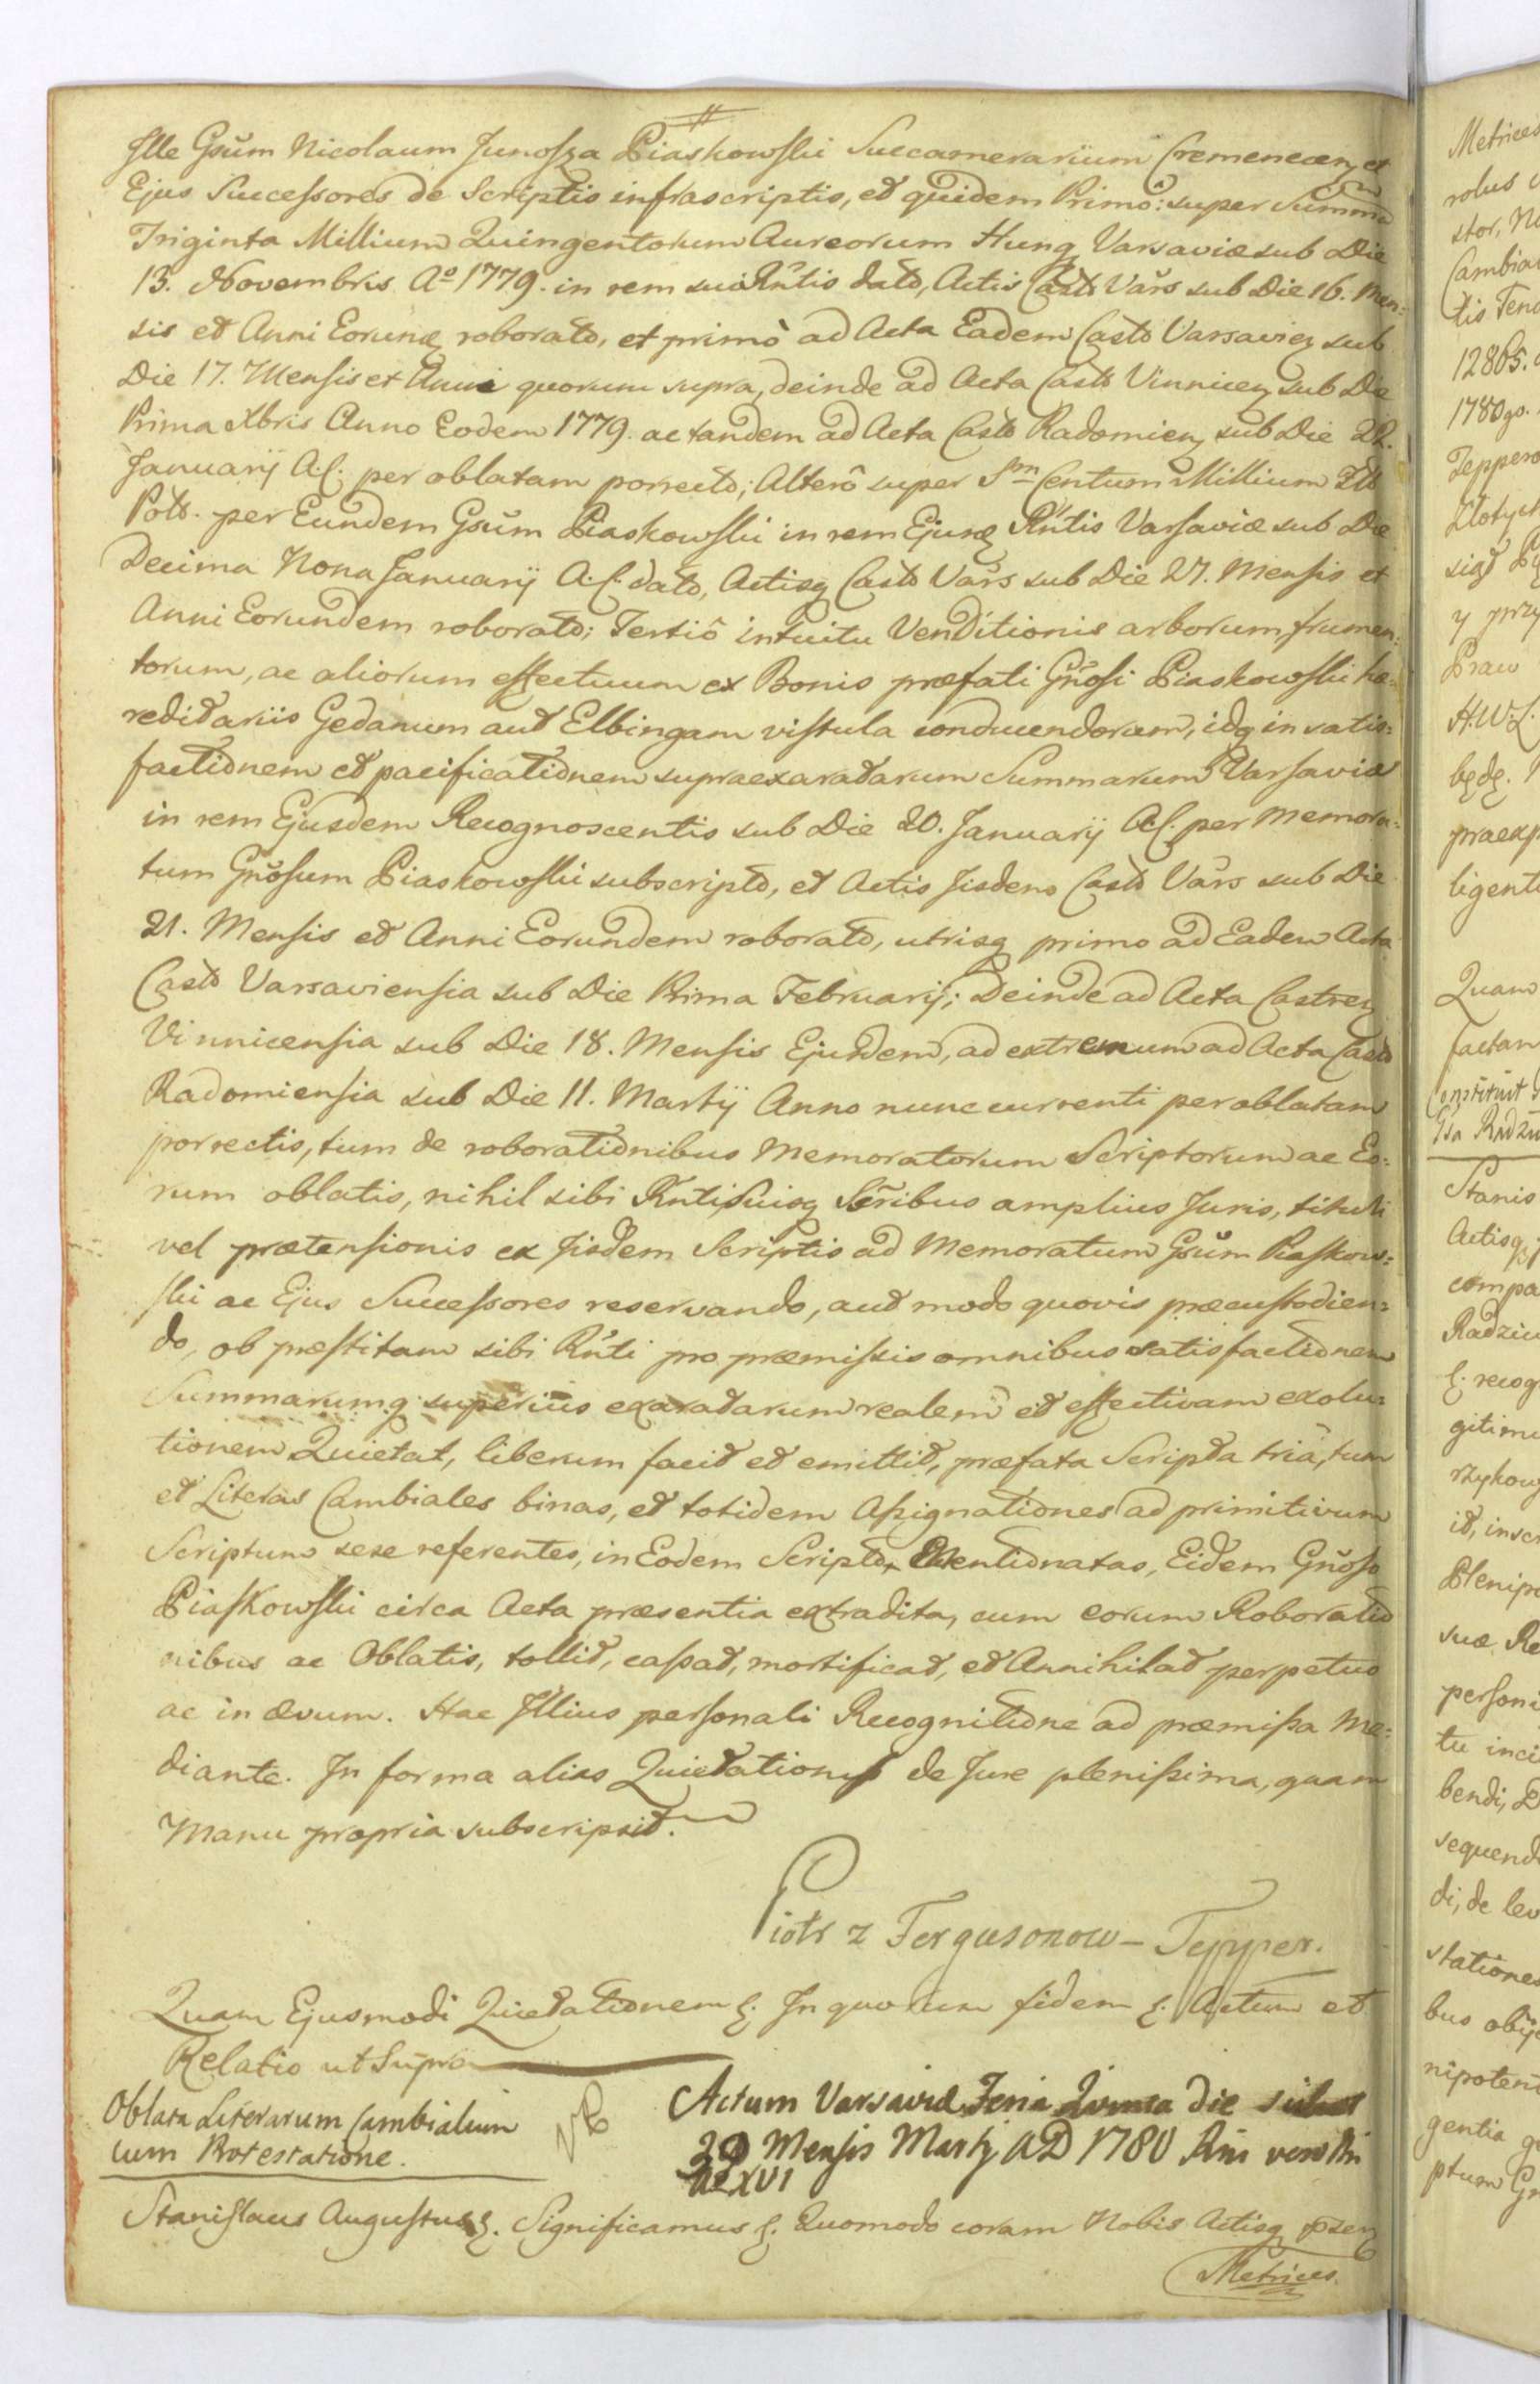 Jlle Gsum Nicolaum Junosza Piaskowski Succamerarium Cremenecen et
Ejus Successores de Scriptis infrascriptis, et quidem Primo: super Summa
Triginta Millium Quingentorum Aureorum Hung Varsaviæ sub Die
13. Novembris Ao 1779. in rem sui Rntis dato, Actis Cast Vars sub Die 16. Men:
sis et Anni Eorund roborato, et primò ad Acta Eadem Cast Varsavien sub
Die 17. Mensis et Anni quorum supra, deinde ad Acta Cast Vinnicen sub Die
Prima Xbris Anno Eodem 1779. ac tandem ad Acta Cast Radomien sub Die 22.
Januarij A.C. per oblatam porrecto; Alterô super Sm Centum Millium Flo
Polo. per Eundem Gsum Piaskowski in rem Ejusd Rntis Varsaviæ sub Die
Decima Nona Januarij A.C. dato, Actisq Cast Vars sub Die 27. Mensis et
Anni Eorundem roborato; Tertiô intuitu Venditionis arborum, frumen:
torum, ac aliorum effectuum ex Bonis præfati Gnosi Piaskowski hæ:
reditariis Gedanum aut Elbingam vistula conducendorum, idq in satis:
factionem et pacificationem supraexaratarum Summarum Varsaviæ
in rem Ejusdem Recognoscentis sub Die 20. Januarij A.C. per Memora:
tum Gnosum Piaskowski subscripto, et Actis Jisdem Cast Vars sub Die
21. Mensis et Anni Eorundem roborato, utrisq primo ad Eadem Acta
Cast Varsaviensia sub Die Prima Februarij; Deinde ad Acta Castren
Vinnicensia sub Die 18. Mensis Ejusdem, ad extremum ad Acta Cast
Radomiensia sub Die 11. Martij Anno nunc currenti per oblatam
porrectis, tum de roborationibus Memoratorum Scriptorum ac Eo:
rum oblatis, nihil sibi Rnti, Suisq Scribus amplius Juris, tituli
vel prætensionis ex Jisdem Scriptis ad Memoratum Gsum Piaskow:
ski ac Ejus Successores reservando, aut modo quovis præcustodien:
do, ob præstitam sibi Rnti pro præmissis omnibus satisfactionem
Summarumq superius exaratarum realem et effectivam exolu:
tionem Quietat, liberum facit et emittit, præfata Scripta tria, tum
et Literas Cambiales binas, et totidem Assignationes ad primitivum
Scriptum sese referentes, in Eodem Scripto Mentionatas, Eidem Gnoso
Piaskowski circa Acta præsentia extradita, cum eorum Roboratio
nibus ac Oblatis, tollit, cassat, mortificat, et Annihilat perpetuo
ac in ævum. Hac Jllius personali Recognitione ad præmissa Me:
diante. In forma alias Quietationis de Jure plenissima, quam
Manu propria subscripsit.
Piotr z Fergusonow – Tepper.
Quam Ejusmodi Quietationem &. In quorum fidem &. Actum et
Relatio ut Supra
Oblata Literarum Cambialium
cum Protestatione.
Actum Varsaviæ Feria Quinta die
30 Mensis Martij AD 1780 Rni vero Nri
ao XVI
Stanislaus Augustus &. Significamus &. Quomodo coram Nobis Actisq psen
Metrices.